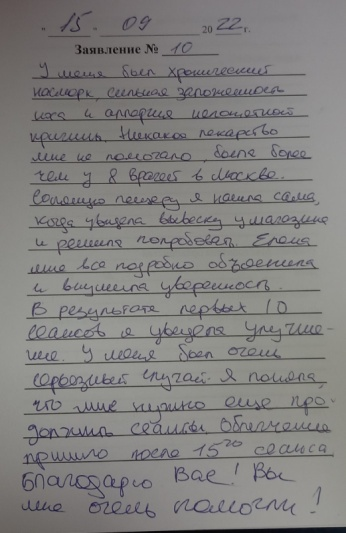 " 15 " 09 2022 г.
Заявление № 10
У меня был хронический
насморк, сильная заложенность
носа и аллергия непонятной
причины. Никакое лекарство
мне не помогало, была более
чем у 8 врачей в Москве.
Соляную пещеру я нашла сама,
когда увидела вывеску у магазина
и решила попробовать. Елена
мне все подробно объяснила
и внушила уверенность.
В результате первых 10
сеансов я увидела улучше-
ние. У меня был очень
серьезный случай. Я поняла,
что мне нужно еще про-
должить сеансы. Облегчение
пришло после 15го сеанса
Благодарю Вас! Вы
мне очень помогли!